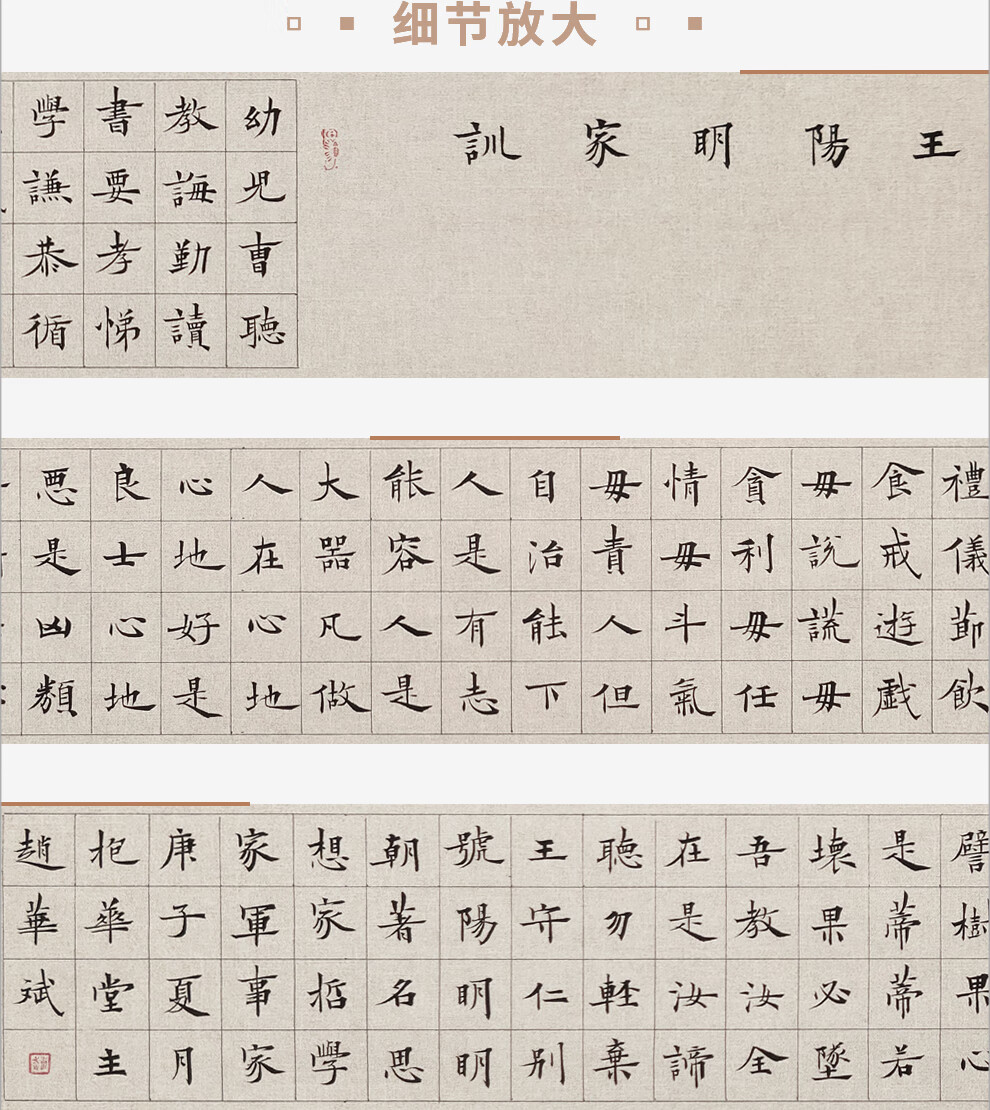 细节放大
王陽明家訓
幼児曹聽
教誨勤讀
書要孝悌
學謙恭循
禮儀節飲
食戒遊戯
毋說謊毋
貪利毋任
情毋斗氣
毋責人但
自治能下
人是有志
能容人是
大器凡做
人在心地
心地好是
良士心地
悪是凶類
譬樹果心
是蒂蒂若
壊果必墜
吾教汝全
在是汝諦
聽勿軽棄
王守仁别
號陽明明
朝著名思
想家哲學
家軍事家
庚子夏月
抱華堂主
趙華斌